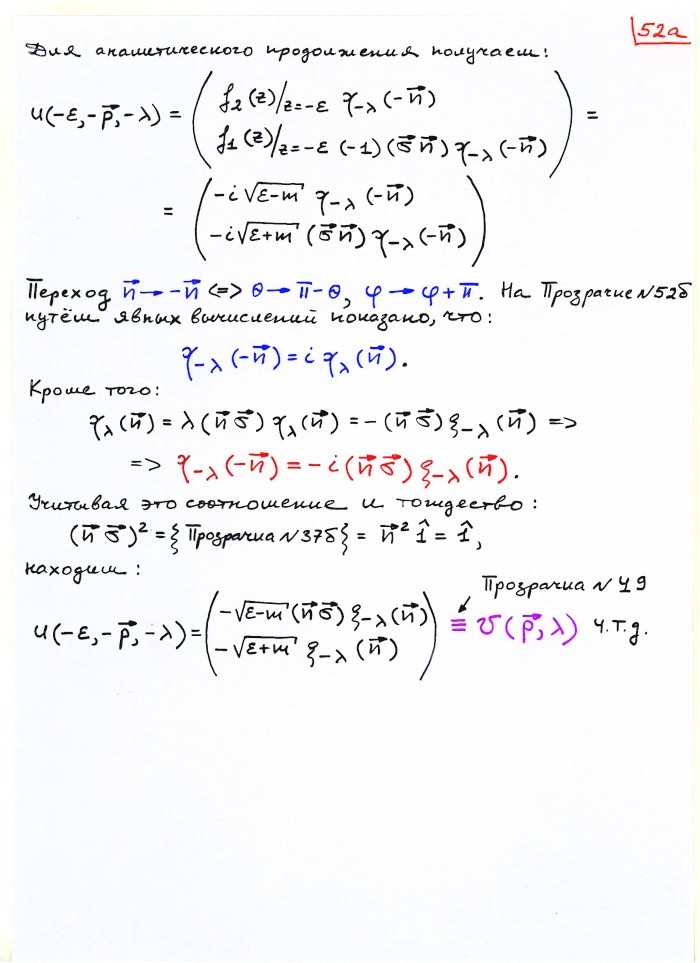 52а
Для аналитического продолжения получаем:
u(-ε, -p⃗, -λ) = ( f₂(z)/z=-ε χ₋λ(-n⃗)
f₁(z)/z=-ε (-1)(σ⃗ n⃗) χ₋λ(-n⃗) ) =
= ( -i√(ε-m) χ₋λ(-n⃗)
-i√(ε+m) (σ⃗ n⃗) χ₋λ(-n⃗) )
Переход n⃗ → -n⃗ <=> θ → π-θ, φ → φ+π. На Прозрачке N52б
путём явных вычислений показано, что:
χ₋λ(-n⃗) = i χλ(n⃗).
Кроме того:
χλ(n⃗) = λ(n⃗ σ⃗) χλ(n⃗) = -(n⃗ σ⃗) ξ₋λ(n⃗) =>
=> χ₋λ(-n⃗) = -i(n⃗ σ⃗) ξ₋λ(n⃗).
Учитывая это соотношение и тождество:
(n⃗ σ⃗)² = { Прозрачка N37б } = n⃗² 1̂ = 1̂,
находим:
Прозрачка N 49
u(-ε, -p⃗, -λ) = ( -√(ε-m) (n⃗ σ⃗) ξ₋λ(n⃗)
-√(ε+m) ξ₋λ(n⃗) ) ≡ v(p⃗, λ) ч.т.д.